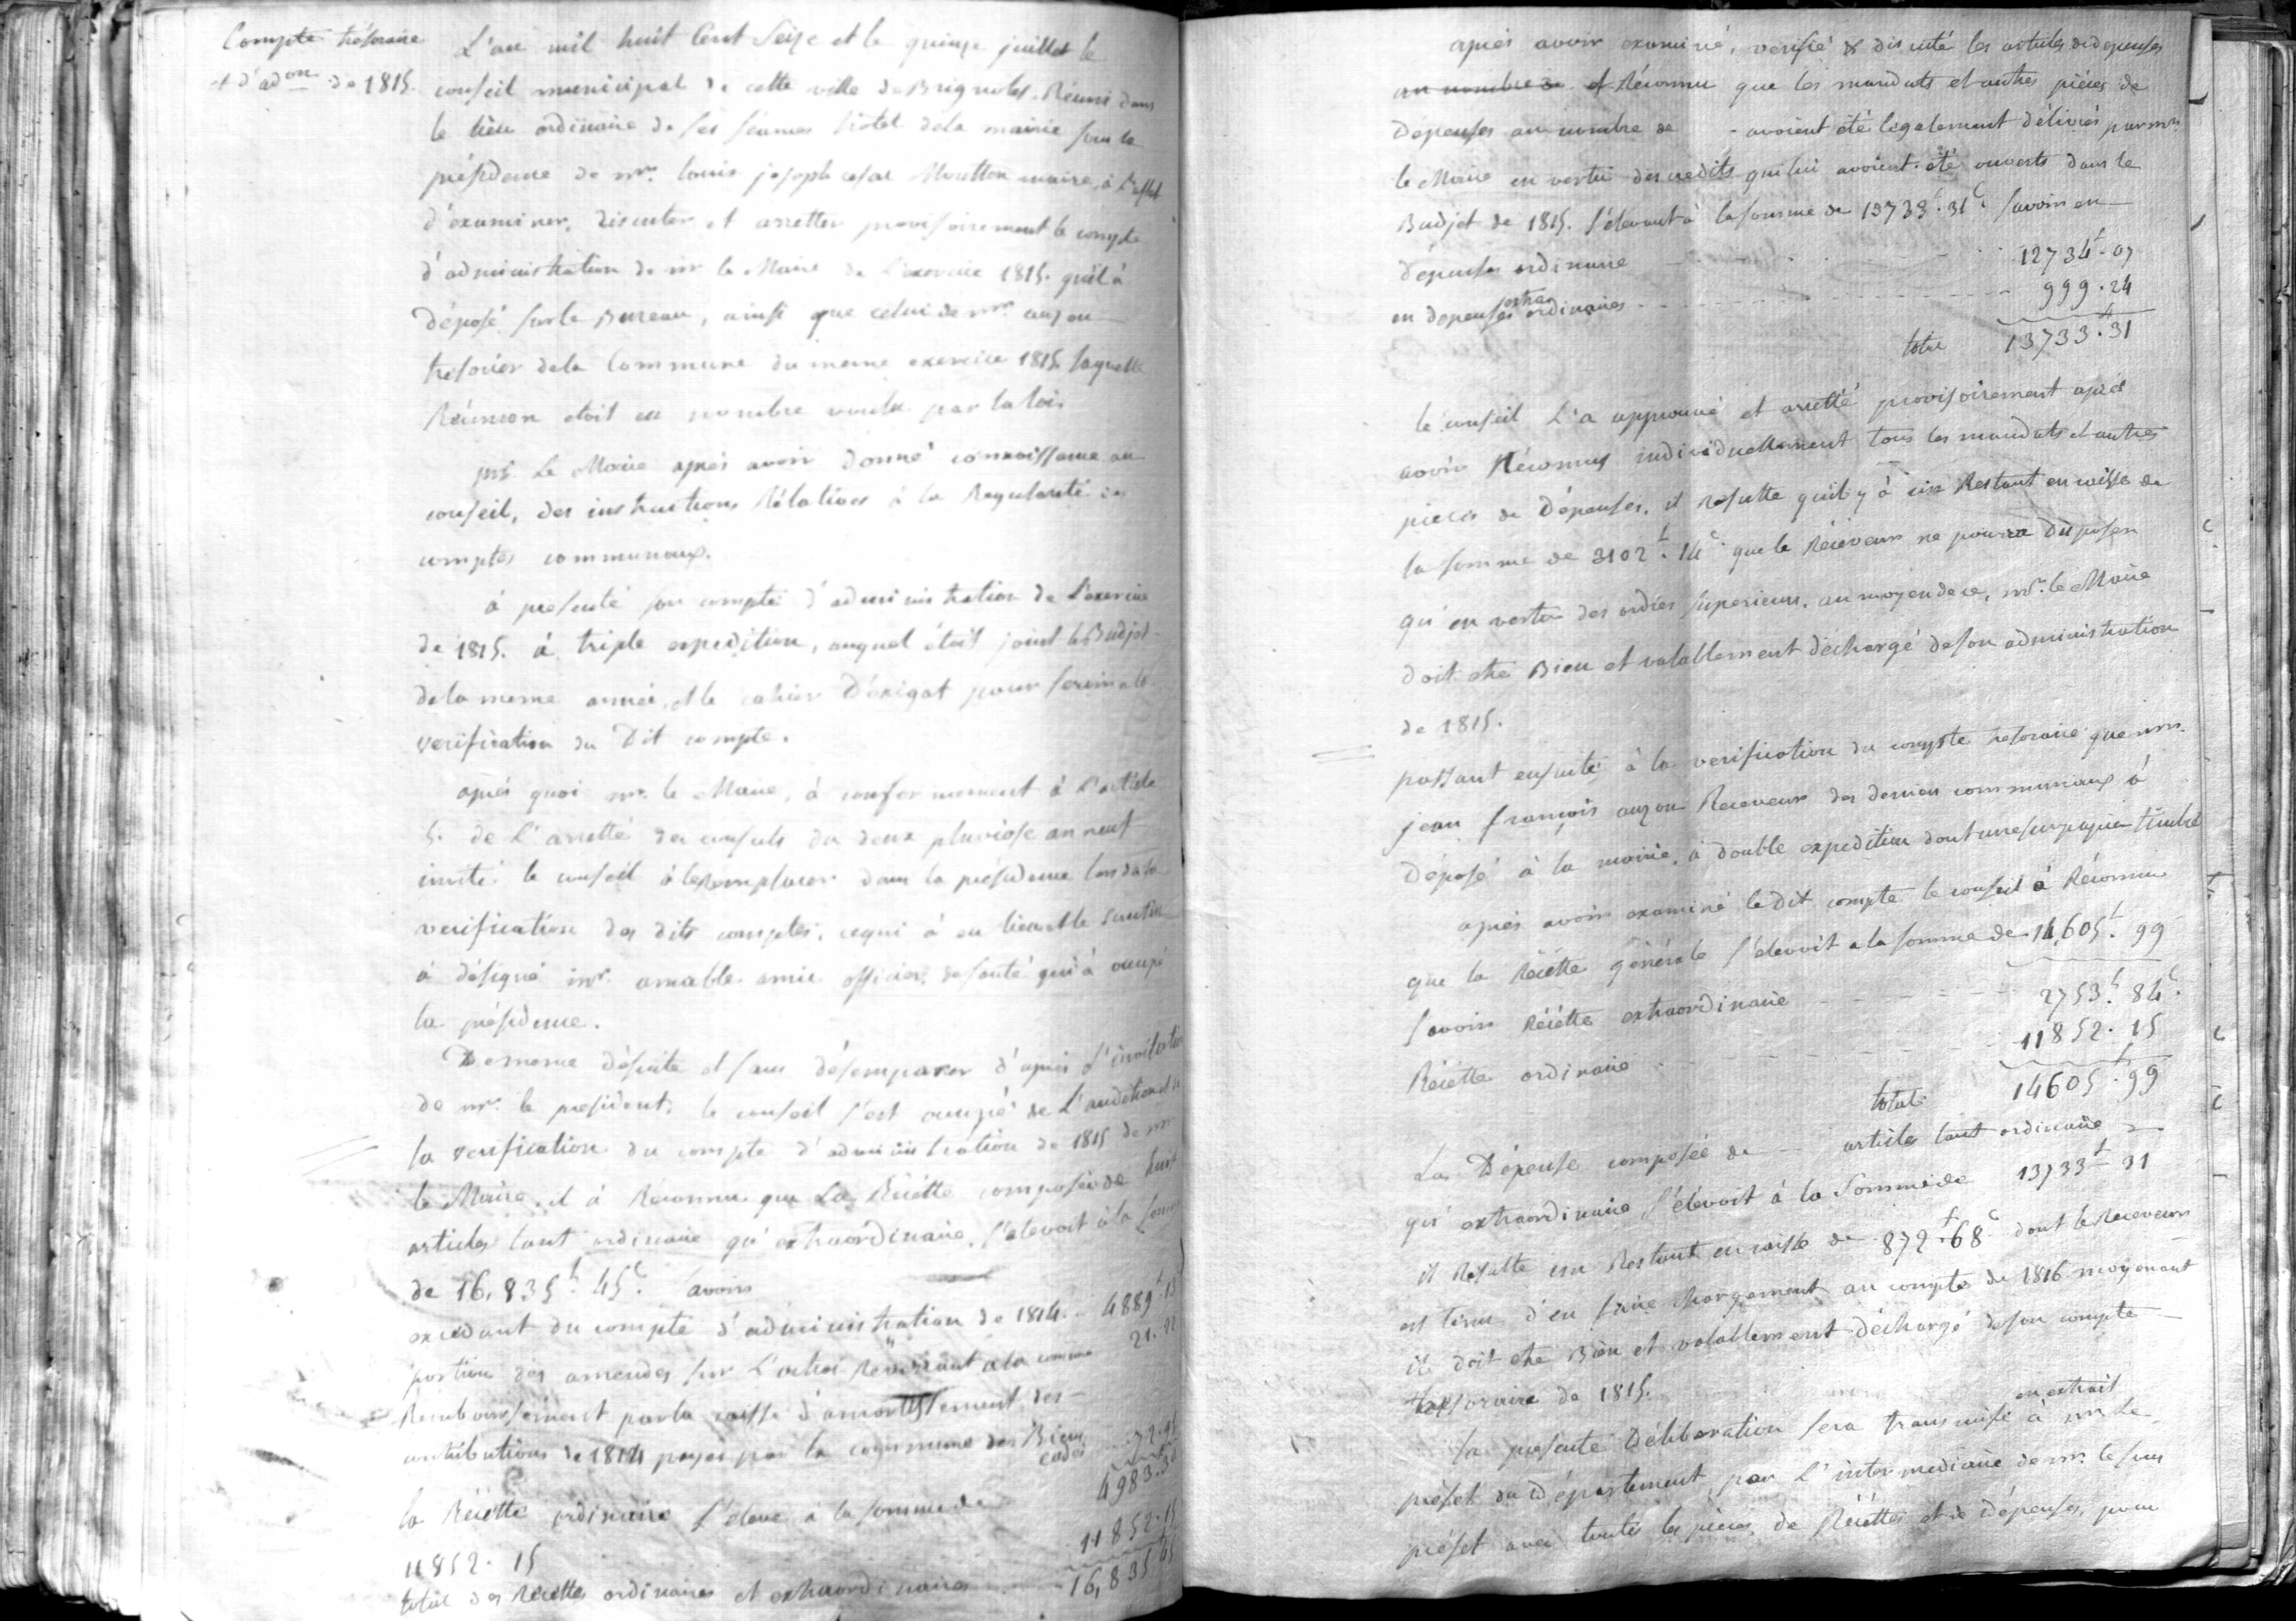 Compte trésoraire
et d'adon de 1815.
L'an mil huit Cent Seize et le quinze juillet le
conseil municipal de cette ville de Brignoles. Réuni dans
le lieu ordinaire de ses séances hotel de la mairie sous la
présidence de mr. louis joseph cesar Moutton maire, à l'effet
d'examiner, discuter et arretter provisoirement le compte
d'administration de mr le Maire de l'exercice 1815. qu'il à
déposé sur le Bureau, ainsi que celui de mr. auzou
trésorier de la Commune du meme exercice 1815. laquelle
Réunion etoit en nombre voulu par la loi.
mr. Le Maire aprés avoir donné connoissance au
conseil, des instructions Rélatives à la Regularité des
comptes communaux.
à presenté son compte d'administration de l'exercice
de 1815. à triple expedition, auquel étoit joint le Budjet
de la meme année, et le cahier d'éxigat pour servir à la
verification du Dit compte.
aprés quoi mr. le Maire, à conformement à l'article
5. de l'arretté des consuls du deux pluviose an neuf
invité le conseil à le Remplacer dans la présidence lors de la
verification des dits comptes, ce qui à eu lieu et le scrutin
à désigné mr. amable amic officier de santé qui à occupé
la présidence.
De meme désuite et sans désemparer d'aprés l'invitation
de mr. le president, le conseil s'est occupé de l'audition et de
la verification du compte d'administration de 1815 de mr
le Maire, il à Réconnu que La Récétte composée de huit
articles tant ordinaire qu'extraordinaire, s'elevoit à la somme
de 16,835f. 45c. savoir
excédant du compte d'administration de 1814. 4889.
portion des amendes sur l'octroi Revenant a la comune 21.
Remboursement par la caisse d'amortissement des
contributions de 1814 payés par la commune des Biens
cedés 72.
4983.
la Récette ordinaire s'éleve à la somme de
11852. 15
11852.15
total des Récettes ordinaires et extraordinaires 16,835.45
aprés avoir examiné, vérifié & discuté les articles de depenses
au nombre de et Réconnu que les mandats et autres piéces de
Dépenses au nombre de - avoient été légalement délivrés par mr.
le Maire en vertu des credits qui lui avoient été ouverts dans le
Budjet de 1815. s'élevant à la somme de 13733f. 31c. savoir en
dépenses ordinaire 12734f. 07
en depenses extraordinaires 999.24
total 13733f.31
le conseil l'a approuvé et arretté provisoirement aprés
avoir Réconnus individuellement tous les mandats et autres
pieces de Dépenses, il resulte qu'il y à un Restant en caisse de
la somme de 3102f. 14c. que le Récéveur ne pourra disposer
qu'en vertu des ordres superieurs. au moyen de ce, mr. le Maire
doit etre Bien et valablement déchargé de son administration
de 1815.
passant ensuite à la verification du compte tresoraire que mr.
jean françois auzou Receveur des deniers communaux à
Déposé à la mairie, à double expedition dont une sur papier timbré
aprés avoir examiné le dit compte le conseil à Réconnu
que la Récétte générale s'élevoit a la somme de 14,605f. 99
savoir Récétte extraordinaire 2753f. 84c.
Récette ordinaire 11852. 15
total 14605f.99
La Dépense composée de - article tant ordinaire
qu'extraordinaire s'élevoit à la Somme de 13733f. 31
il Résulte un Restant en caisse de 872f.68c dont le Receveur
est tenu d'en faire chargement au compte de 1816 moyenant
il doit etre Bien et valablement déchargé de son compte
tresoraire de 1815.
la presente Déliberation sera transmise en extrait à mr Le
préfet du Département par l'intermediaire de mr. le sous
préfet avec toutes les pièces de Récéttes et de dépenses, pour